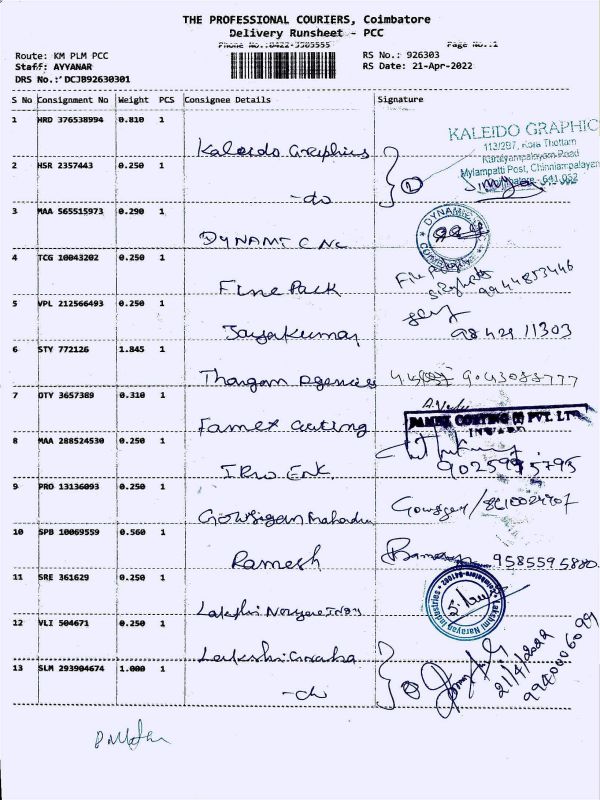 THE PROFESSIONAL COURIERS, Coimbatore
Delivery Runsheet - PCC
Phone No.:0422-3505555 Page No.:1
Route: KM PLM PCC RS No.: 926303
Staff: AYYANAR RS Date: 21-Apr-2022
DRS No.: DCJB92630301
S No Consignment No Weight PCS Consignee Details Signature
1 HRD 376538994 0.810 1 Kaleido Graphics
KALEIDO GRAPHIC
113/2B7, Kora Thottam
Kurumbapalayam Road
Mylampatti Post, Chinniampalayam
641 062
2 HSR 2357443 0.250 1 -do 2
3 MAA 565515973 0.290 1 DYNAMIC NC
DYNAMIC
4 TCG 10043202 0.250 1 Fine Pack
9944853446
5 VPL 212566493 0.250 1 Jayakumar 98429 11303
6 STY 772126 1.845 1 Thangam Agencies 9043083777
7 OTY 3657389 0.310 1 Famex Coating
PAMEX COATING (I) PVT. LTD
INWARD
8 MAA 288524530 0.250 1 9025995795
9 PRO 13136093 0.250 1 Gowsigan
10 SPB 10069559 0.560 1 Ramesh 9585595880
11 SRE 361629 0.250 1 Lakshmi Narayan
Lakshmi Narayan Industries
12 VLI 504671 0.250 1
13 SLM 293904674 1.000 1 -do 2
21/4/2022
9940006099